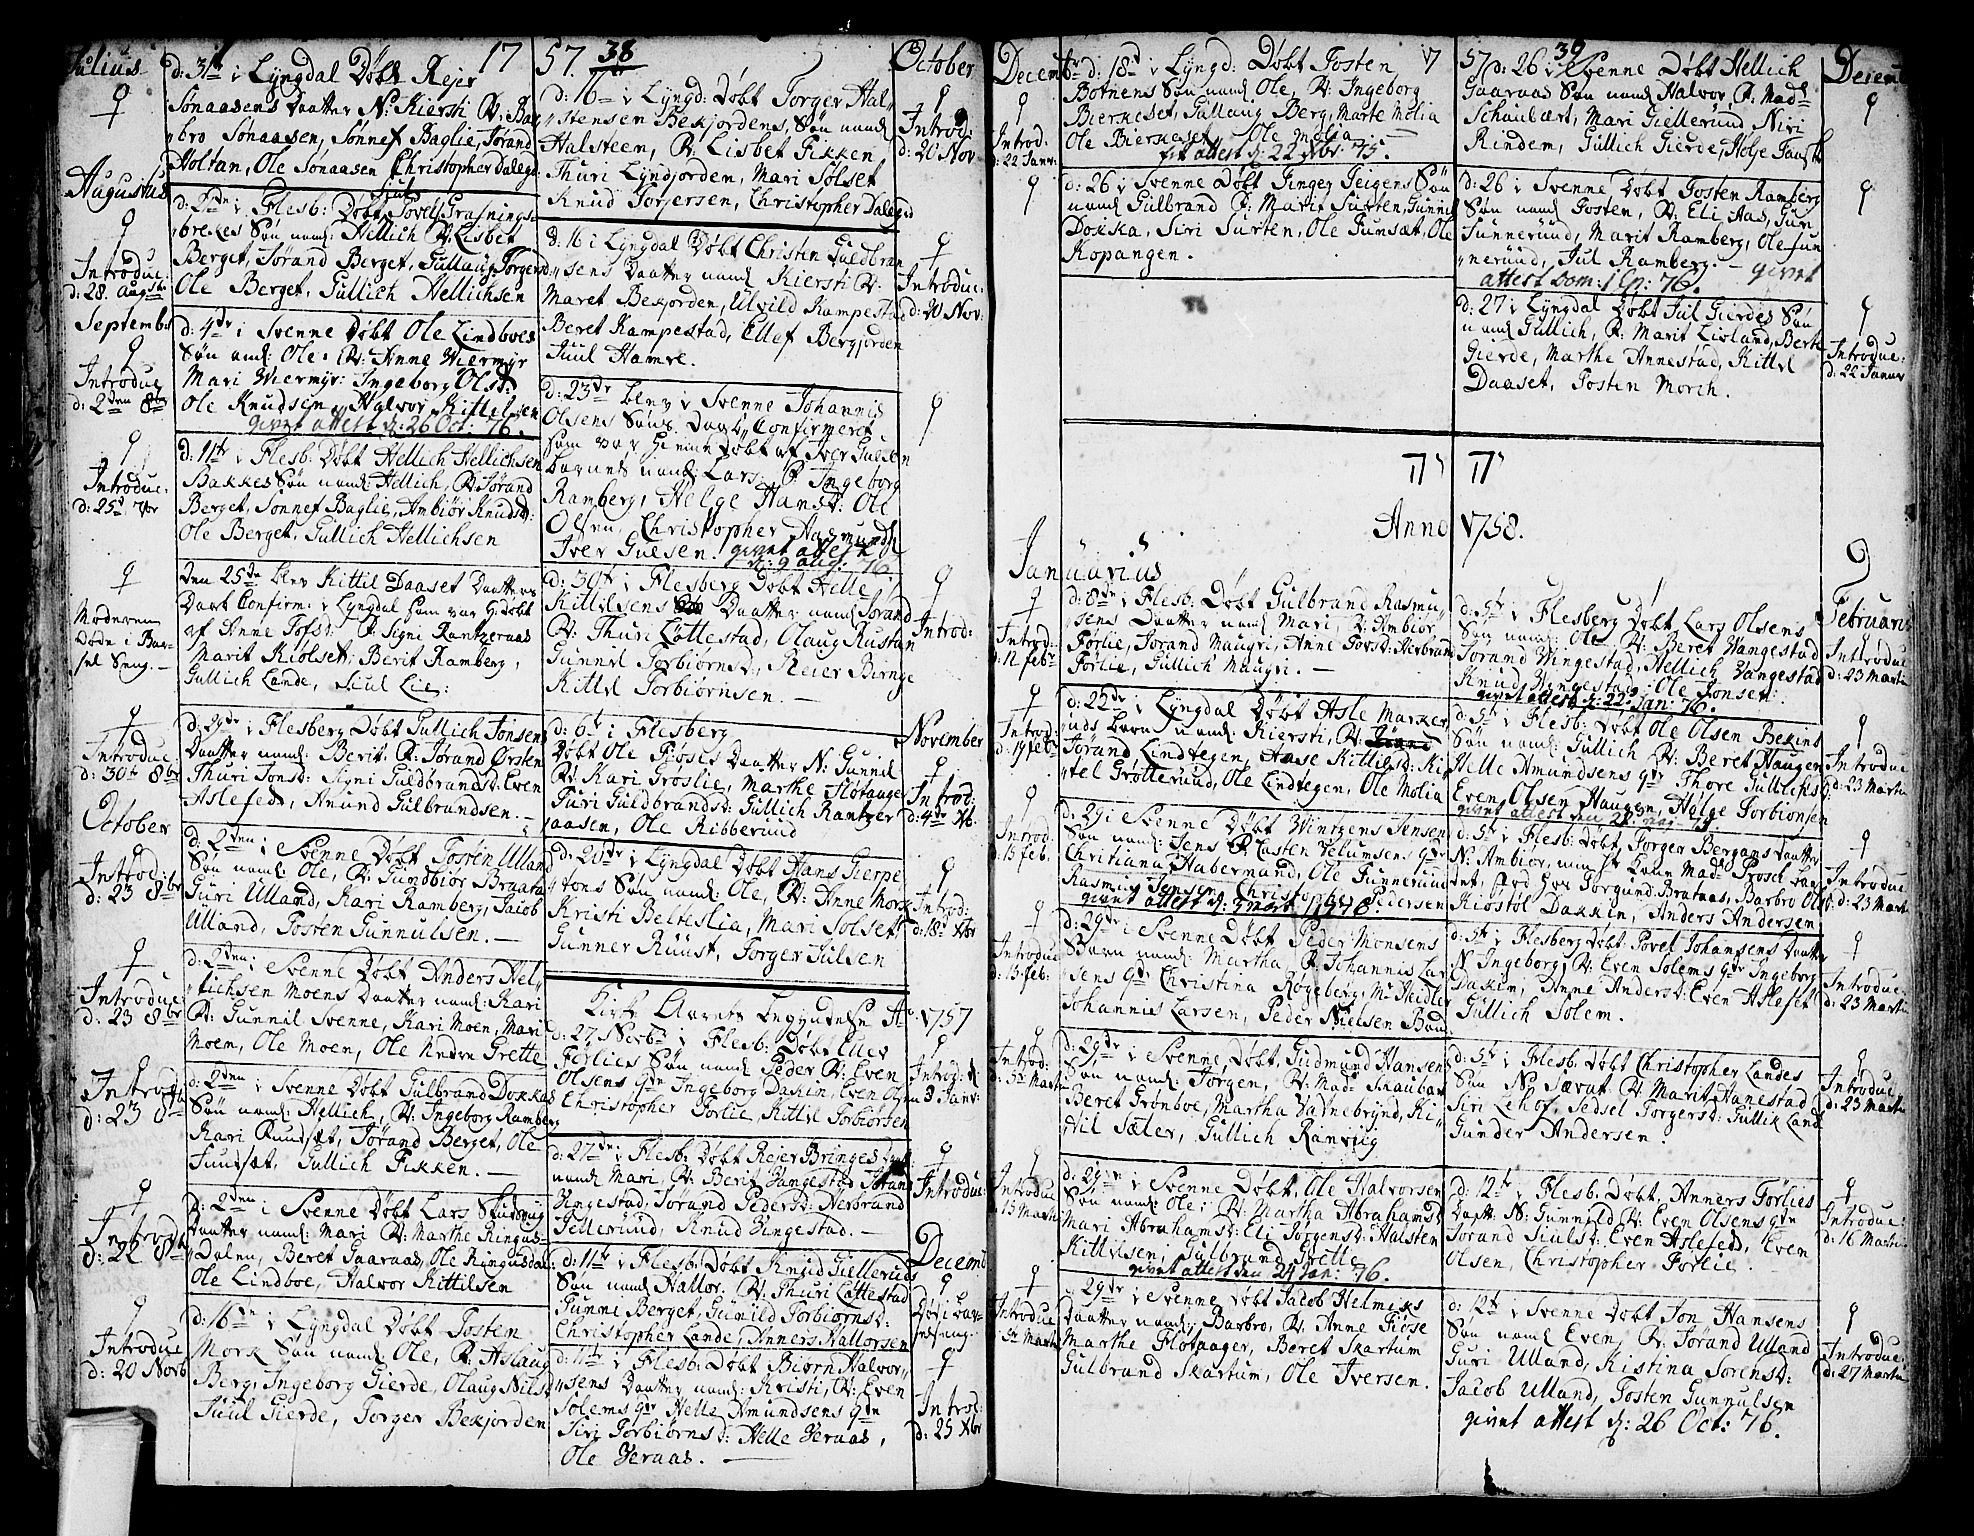 Julius 17
d: 31te i Lyngdal Døbt Rejer
Sønaasens Daatter N: Kiersti P: Bar
bro Sønaasen, Sønnef Baglie, Jørand
Holtan, Ole Sønaasen Christopher Dalegd
Augustus
Introduc:
d: 28. Augsti
Berget, Jørand Berget, Gullaug Torgersd
Ole Berget, Gullich Hellichsen
Septembr
d: 4de i Svenne Døbt Ole Lindboes
Søn naml: Ole. P: Anne Wiermyr
Mari Wiermyr: Ingeborg Olsd:
Ole Knudsen, Halvor Kittelsen
givet attest d: 26 Oct: 76.
Introduc
d: 2den 8br
d: 11te i Flesb: Døbt Hellich Hellichsen
Bakkes Søn naml: Hellich, P: Jørand
Berget, Sønnef Baglie, Ambiør Knudsd:
Ole Berget, Gullich Hellichsen
Introduc:
d: 25d 7br
Den 25de blev Kittil Daaset Daatters
Daab Confirm: i Lyngdal som var G: døbt
af Anne Tofsd: P: Signe Rantzeraas
Marit Kiolset, Berit Ramberg,
Gullich Lande, Juul Lie:
Moderen
Døde i Bar-
sel Seng. —
d: 29de i Flesberg Døbt Gullich Jonsens
Daatter naml: Berit. P: Jørand Ørsten
Thuri Jonsd: Signi Guldbrandsd: Even
Aslefed, Anund Gulbrandsen. —
Introduc:
d: 30te 8br
October
d: 2den i Svenne Døbt Tosten Ulland
Søn naml: Ole, P: Gundbiør Braata
Guri Ulland, Kari Ramberg, Jacob
Ulland, Tosten Gunnulsen. —
Introd:
d: 23 8br
d: 2den i Svenne Døbt Anders Hel-
lichsen Moens Daatter naml: Kari
P: Gunnil Svenne, Kari Moen, Mari
Moen, Ole Moen, Ole Nedre Grette
Introduc:
d: 23 8br
d: 2den i Svenne Døbt Gulbrand Dokkas
Søn naml: Hellich, P: Ingeborg Ramberg
Kari Jundset, Jørand Berget, Ole
Jundset, Gullich Fikken. —
Introd:
d: 23 8br
d: 2den i Svenne Døbt Lars Skudsvig
Daatter naml: Mari P: Marthe Ringus-
Dalen, Beret Gaaraas, Ole Ringusdal
Ole Lindboe, Halvor Kittilsen
d: 22 8br
d: 16de i Lyngdal Døbt Tosten
Mork Søn naml: Ole, P: Aslaug
Berg, Ingeborg Gierde, Olaug Nilsd
Juul Gierde, Torger Bekjorden
Introduc
d: 20 Novb
57. 38
October
d: 16de i Lyngd: Døbt Torger Hal-
stensen Bekjordens, Søn naml
Halsteen, P: Lisbet Fikken
Thuri Lyndjorden, Mari Solset
Knud Torjersen, Christopher Dalegd
Introd:
d: 20 Nov
d: 16 i Lyngdal Døbt Christen Guldbran
sens Daatter naml: Kiersti P:
Maret Bekjorden, Ulvild Kampestad
Beret Kampestad, Ellef Bergjorden
Juul Hamre.
Introduc:
d: 20 Nov:
d: 23de blev i Svenne Johannis
Olsens Søns Daab Confirmeret
som var Hiemme døbt af Iver Gulsen
Barnet naml: Lars, P: Ingeborg
Ramberg, Helge Hansd: Ole
Olsen, Christopher Aasmunds
Iver Gulsen. givet attest
d: 9 aug: 76.
d: 30te i Flesberg Døbt Helle
Kittilsens Daatter naml Jørand
P: Thuri Lattestad, Olaug Rustan
Gunnil Torbiørnsd, Reier Bringe
Kittil Torbiørnsen. —
Introd:
November
d: 6te i Flesberg
Døbt Ole Fjøses Daatter N: Gunnil
P: Kari Groslie, Marthe Flotaager
Turi Guldbrandsd: Gullich Rantzer
aasen, Ole Ribberund
Introd:
d: 4de Xb.
d: 20de i Lyngdal Døbt Hans Gierpe
tons Søn naml: Ole, P: Anne Mork
Kristi Belteslia, Mari Solset
Gunner Ruust, Torger Julsen
Introd:
d: 18d Xbr
Kirke Aarets Begyndelse Ao 1757
d: 27 Novbr i Flesb: Døbt Ellev
Førlies Søn naml Peder P: Even
Olsens qde Ingeborg Dakin, Even Olsen
Christopher Førlie, Kittil Torbiørsen
Introd: d
3. Janv:
d: 27de i Flesb: Døbt Rejer Bringes Daat
naml Mari, P: Berit Vangestad Jøran
Vingestad, Jørand Pedersd: Herbrand
Tellerund, Knud Vingestad. —
Introduc:
Decemb
d: 11te i Flesb: Døbt Knud Gielleruds
Søn naml Hallor: P: Thuri Lattestad
Tunni Berget, Gunild Torbiørnsd:
Christopher Lande, Anners Hallorsen
d: 11te i Flesb: Døbt Biørn Halvor-
sens Daatter naml: Kristi, P: Even
Solems qde Helle Amundsens qde
Siri Torbiørnsd: Helle Veraas,
Ole Veraas. —
Introd:
d: 25 Xbr
Decemb 7
d: 18d i Lyngd: Døbt Tosten
Botnens Søn naml Ole, P: Ingeborg
Bierkeset, Gullaug Berg, Marte Molia
Ole Bierkeset, Ole Molia
fik attest d: 22 Xbr 75.
Introd.
d: 22 Janv:
d: 26 i Svenne Døbt Finger Teigens Søn
naml Gulbrand P: Marit Surten, Gunnil
Dokka, Siri Surten, Ole Jumsæt, Ole
Kopangen.
Anno 1758.
Januarius
d: 8de i Flesb: Døbt Gulbrand Rasmu-
sens Daatter naml: Mari, P: Ambiør
Førlie, Jørand Maugre, Anne Torsd: Herbrand
Førlie, Gullich Maugre. —
Introd:
d: 12 feb:
d: 22de i Lyngdal Døbt Asle Marker
uds barn naml: Kiersti, P:
Jørand Lindtegen, Aase Kittilsd: Kit
tel Grøtterud, Ole Lindtegen, Ole Molia
Introd:
d: 19 feb:
d: 29 i Svenne Døbt Wintzens Jensens
Søn naml: Jens P: Casten Velumsens qde
Christiana Habermand, Ole Tunnerund
Rasmus Jensen, Christopher Pedersen
Introd:
d: 13 feb.
d: 29de i Svenne Døbt Peder Monsens
Barn naml: Martha P: Johannis Lar
sens qde Christina Rogeberg, Mr Heidler
Johannis Larsen, Peder Nielsen Bam
Introduc
d: 13 feb:
d: 29de i Svenne, Døbt, Gudmund Hansens
Søn naml: Jørgen, P: Madm Skaubær
Beret Grønboe, Martha Vatnebrynd, Ki-
til Sæter, Gullich Ranvig
Introd:
d: 29de i Svenne Døbt, Ole Halvorsen
Søn naml: Ole, P: Martha Abrahamsd:
Mari Abrahamsd: Eli Jorgensd: Halsten
Kittilsen, Gulbrand Grette
givet attest den 24 Jan: 76.
Introduc
d: 13 Marti
29de i Svenne Døbt Jacob Helmiks
Daatter naml: Barbro, P: Anne Fiøse
Marthe Flotaager, Beret Skartum
Gulbrand Skartum, Ole Iversen.
Introduc
57 39
Decemb
d: 26 i Svenne Døbt Hellich
Gaaraas Søn naml Halvor, P: Madm
Schaubært, Mari Giellerund, Niri
Rindem, Gullich Gierde, Holje Fausk
d: 26 i Svenne Døbt Tosten Ramberg
Søn naml Tosten, P: Eli Aas, Guri
Tunnerund, Marit Ramberg, Ole Tun
nerund, Jul Ramberg. — givet
d: 27 i Lyngdal Døbt Jul Gierdes Søn
naml Gullich, P: Marit Livland, Berte
Gierde, Marthe Annestad, Kittil
Daaset, Tosten Morch.
Introduc:
d: 22 Janv
Februari
d: 5te i Flesberg Døbt Lars Olsens
Søn naml: Ole P: Beret Vangestad
Jørand Vingestad, Hellich Vangestad
Knud Vingestad, Ole Jonsen:
givet attest d: 22 Jan: 76.
Introduc
d: 23 Marti
d: 5te i Flesb: Døbt Ole Olsen Bekins
Søn naml: Gullich P: Beret Haugen
Helle Amundsens qde Thore Gullichs
Even Olsen Haugen, Helge Torbionsen
Introduc
d: 23 Martii
d: 5te i Flesb: Døbt, Torger Bergans Daatter
N: Ambior, min
Kiostøl Dakkin, Anders Andersen
Introduc
d: 23 Marti
d: 5te i Flesberg Døbt: Povel Johansens Daatter
N: Ingeborg P: Even Solems qde Ingeborg
Dakin, Anne Andersd: Even Aslefet
Gullich Solem.
Introduc:
d: 23 Martii
d: 5te i Flesb: Døbt Christopher Landes
Søn N: Tærat P: Marit Hanestad
Siri Lehof, Sedsel Torgersd: Gullik Land
Gunder Andersen.
Introduc
d: 23 Martii
d: 12te i Flesb: Døbt, Anners Førlies
Daatt: N: Gunnild P: Even Olsens qde
Jørand Juulsd: Even Aslefed, Even
Olsen, Christopher Førlie.
Introduc:
d: 16 Martii
d: 12te i Svenne Døbt Jon Hansens
Søn naml Even, P: Jørand Ulland
Guri Ulland, Kistina Sørensd:
Jacob Ulland, Tosten Gunnulsen
givet attest d: 26 Oct: 76.
Introduc:
d: 27 Martii